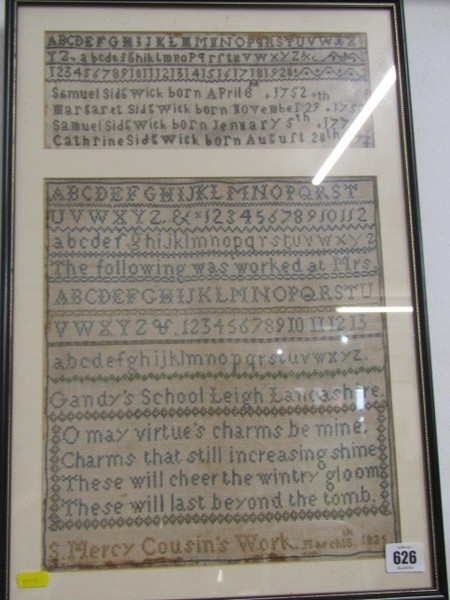 ABCDEFGHIJKLMNOPQRSTUVWXY
YZ. abcdefghijklmnopqrstuvwxyz&
1234567891011121314151617181920
Samuel Sidgwick born April 8th . 1752
Margaret Sidgwick born November 29 . 175
Samuel Sidgwick born Jenuary 5th . 177
Cathrine Sidgwick born August 20th
ABCDEFGHIJKLMNOPQRST
UVWXYZ.&*123456789101112
abcdefghijklmnopqrstuvwxyz
The following was worked at Mrs.
ABCDEFGHIJKLMNOPQRSTU
VWXYZ&.12345678910111213
abcdefghijklmnopqrstuvwxyz.
Gandy's School Leigh Lancashire.
O may virtue's charms be mine.
Charms that still increasing shine
These will cheer the wintry gloom
These will last beyond the tomb.
S. Mercy Cousin's Work. March 18th. 1825
626